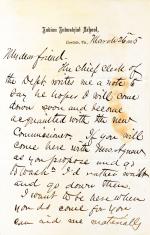 Indian Industrial School,
March 26
My dear friend.
The chief clerk of
the Dept writes me a note to
say he hopes I will come
down soon and become
acquainted with the new
Commissioner. If you will
come here with
as you propose and go
to Wash I'd rather wait
and go down then.
I want to be here when
you do come for you
can aid me materially